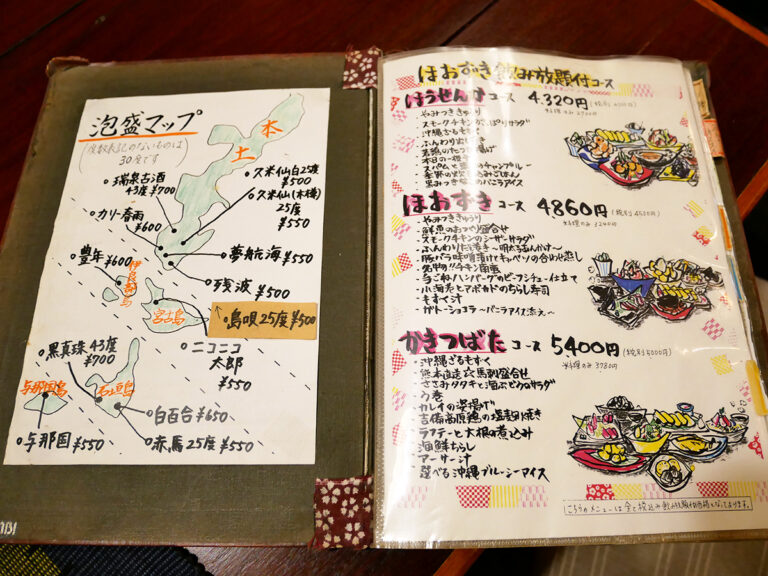 泡盛マップ
(度数表記のないものは
30度です)
本
土
・瑞泉古酒
43度 ¥700
・久米仙白25度
¥500
・久米仙(木樽)
25度
¥550
・カリー春雨
¥600
・夢航海 ¥550
・残波 ¥500
豊年 ¥600
・島唄 25度 ¥500
宮古島
・ニコニコ
太郎
¥550
・黒真珠 43度
¥900
与那国島
石垣島
・白百合 ¥650
・与那国 ¥550
・赤馬 25度 ¥500
ほおずき 飲み放題付コース
ほうせんか コース 4,320円
料理のみ 2700円
・やみつききゅうり
・スモークチキンのさっぱりサラダ
・沖縄ざるもずく
・ふんわり出し巻
・若鶏のたつた揚げ
・スパムと豆腐のチャンプルー
・黒みつきなこのバニラアイス
ほおずき コース 4860円 (税別 4500円)
料理のみ 3240円
・やみつききゅうり
・鮮魚のおつくり盛合せ
・スモークチキンのシーザーサラダ
・ふんわり出し巻き〜明太あんかけ〜
・豚バラ味噌漬けキャベツの合わせ蒸し
・名物!!チキン南蛮
・手ごねハンバーグのビーフシチュー仕立て
・小海老とアボカドのちらし寿司
・もずく汁
・ガトーショコラ〜バニラアイス添え〜
かきつばた コース 5400円 (税別 5000円)
料理のみ 3780円
・沖縄ざるもずく
・熊本直送☆馬刺盛合せ
・ささみタタキと海ぶどうのサラダ
・う巻
・カレイの姿揚げ
・吉備高原鶏の塩麹焼き
・ラフテーと大根の煮込み
・海鮮ちらし
・アーサー汁
・選べる沖縄ブルーシーアイス
こちらのメニューは全て税込み飲み放題付価格となっております。